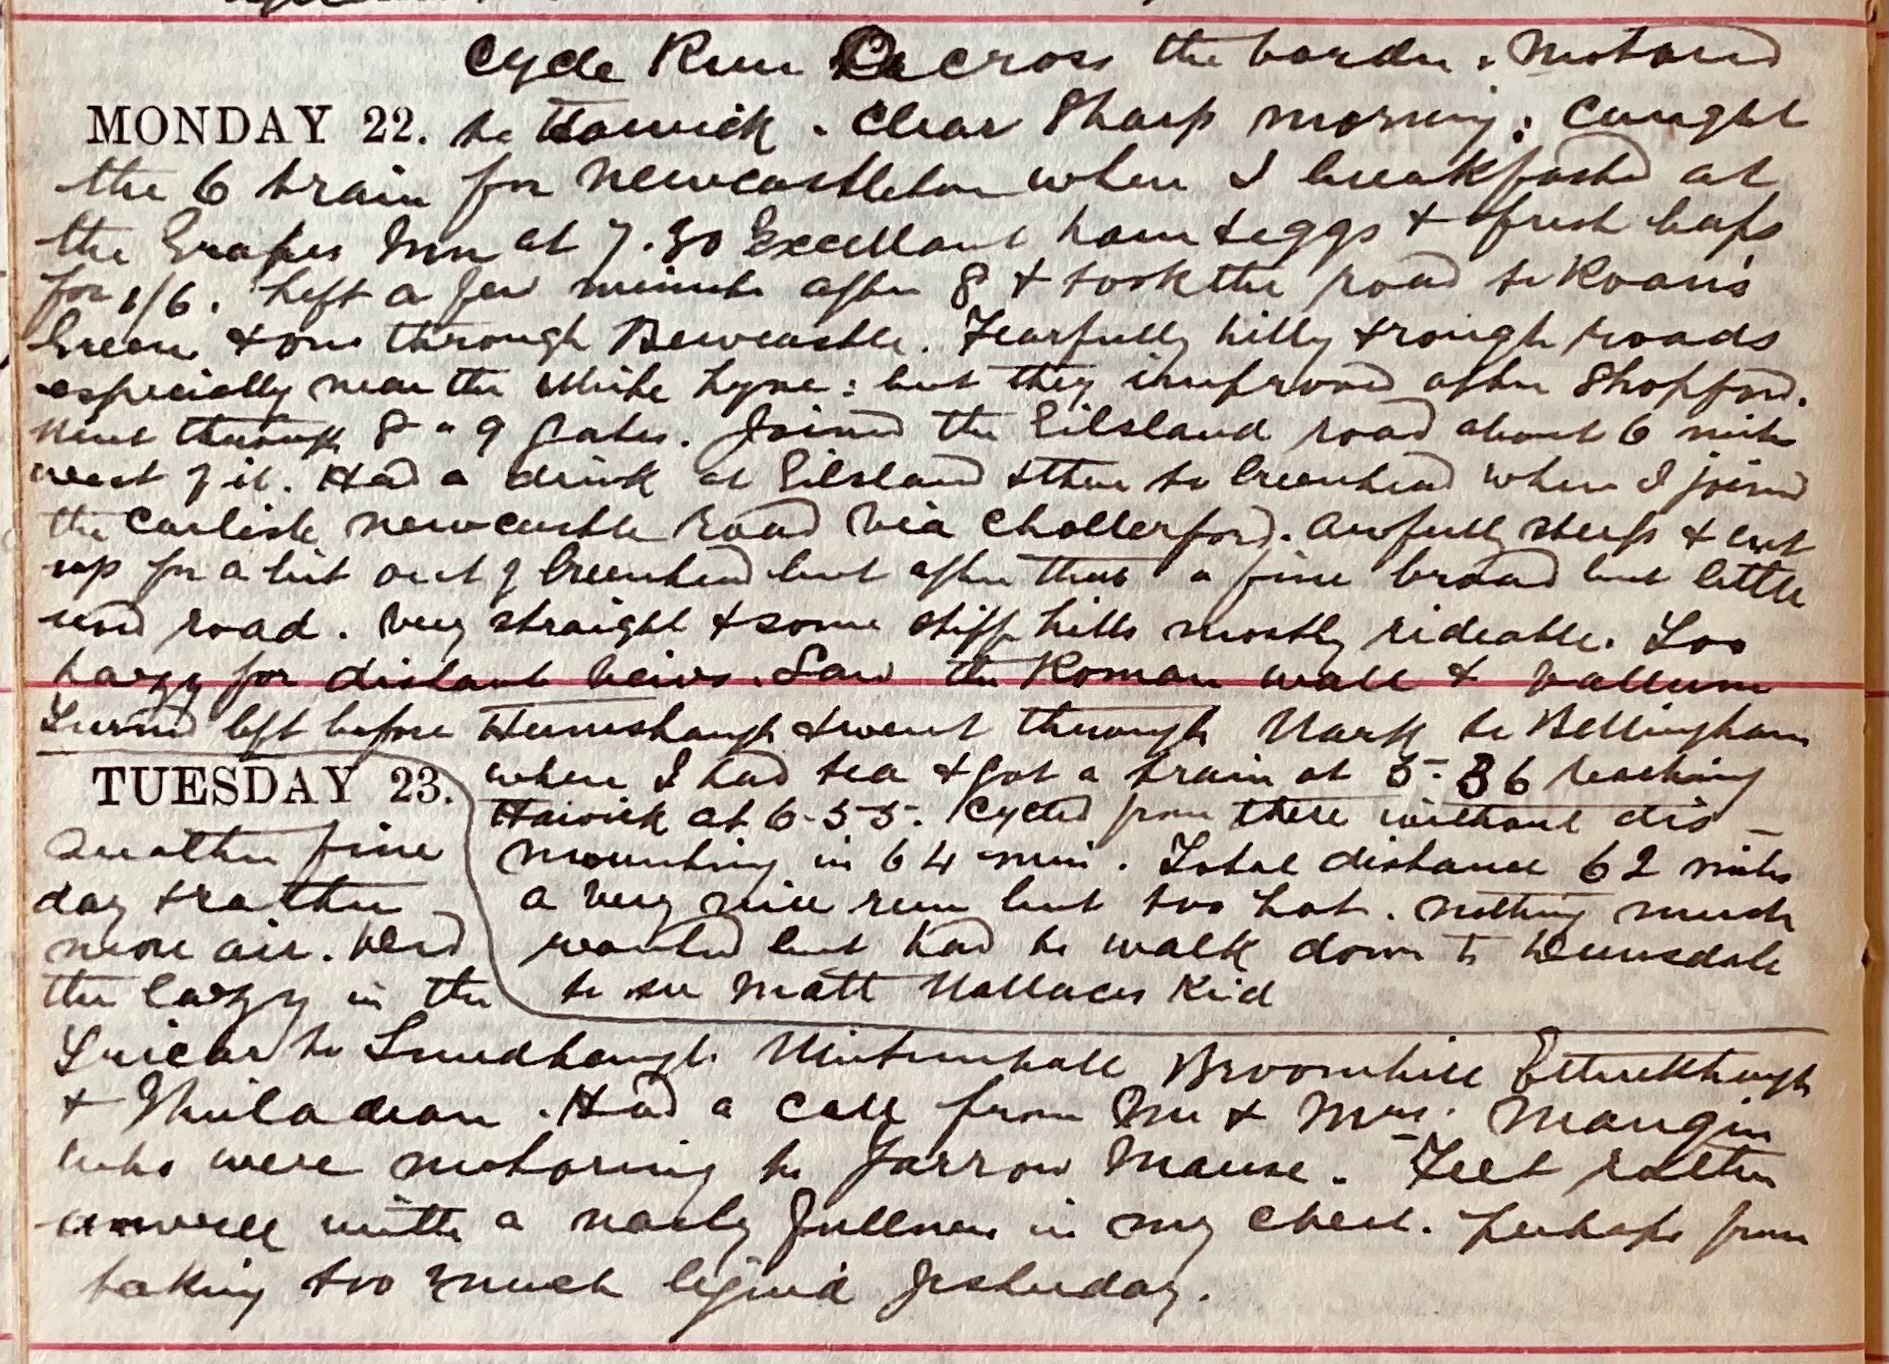 Cycle Run Across the border. Motored
MONDAY 22. to Hawick. Clear Sharp morning: Caught
the 6 train for Newcastleton where I breakfasted at
the Grapes Inn at 7.30 Excellent ham & eggs & fresh baps
for 1/6. Left a few minutes after 8 & took the road to Roan's
Green & on through Bewcastle. Fearfully hilly & rough roads
especially near the White Lyne: but they improved after Shopford.
Went through 8 or 9 gates. Joined the Gilsland road about 6 miles
west of it. Had a drink at Gilsland & then to Greenhead where I joined
the Carlisle Newcastle road via Chollerford. Awfully steep & cut
up for a bit out of Greenhead but after that a fine broad but little
used road. Very straight & some stiff hills mostly rideable. Too
hazy for distant veiws. Saw the Roman wall & vallum
Turned left before Humshaugh & went through Wark to Bellingham
where I had tea & got a train at 5-36 reaching
Hawick at 6-55. Cycled from there without dis-
mounting in 64 min. Total distance 62 miles
a very nice run but too hot. Nothing much
wanted but had to walk down to
to see Matt Wallaces Kid
TUESDAY 23.
Another fine
day & rather
more air. Used
the lazy in the
Tricar to Broomhill Ettrickhaugh
& Philadean. Had a call from Mr & Mrs. Mangin
who were motoring to Yarrow Manse. Felt rather
unwell with a nasty fullness in my chest. Perhaps from
taking too much liquid yesterday.